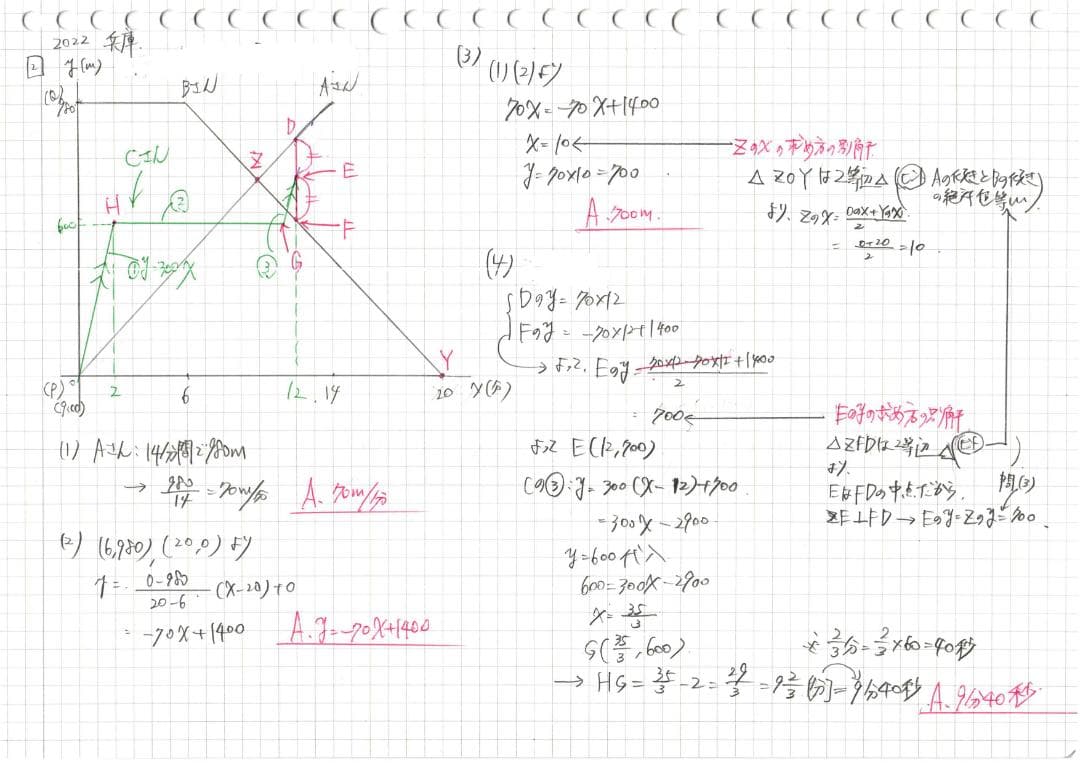 2022 兵庫.
2 y(m)
(Q) 980
Bさん
Aさん
Cさん
D
Z
E
H
②
600
F
G
①y=300x
③
Y
(P) 0
(9:00)
2
6
12
14
20
x(分)
(1) Aさん:14分間で980m
→ 980/14=70m/分
A. 70m/分
(2) (6,980),(20,0)より
y= 0-980/20-6 (x-20)+0
= -70x+1400
A. y=-70x+1400
(3)
(1)(2)より
70x=-70x+1400
x=10
y=70×10=700
A. 700m.
Zのxの求め方の別解
△ZOYは2等辺△(∵ Aの傾きとBの傾きの絶対値等しい)
より、Zのx= Oのx+Yのx/2
= 0+20/2 =10
(4)
Dのy=70×12
Fのy= -70×12+1400
→よって、Eのy= 70×12-70×12+1400/2
= 700
よって E(12,700)
Cの③:y=300(x-12)+700
=300x-2900
y=600代入
600=300x-2900
x=35/3
G(35/3,600)
→ HG=35/3-2=29/3=9 2/3[分]=9分40秒
∵ 2/3分=2/3×60=40秒
A. 9分40秒
Eのyの求め方の別解
△ZFDは2等辺△(∵ )
より
EはFDの中点だから、
ZE⊥FD→Eのy=Zのy=700.
問(3)